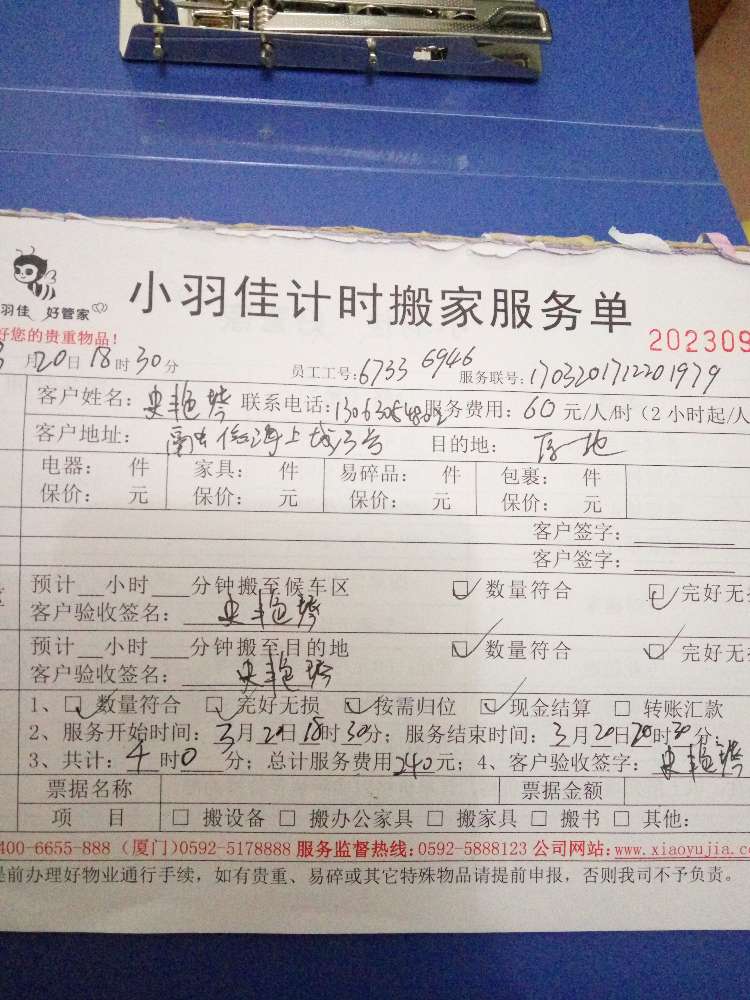 羽佳 好管家
小羽佳计时搬家服务单
好您的贵重物品!
202309
3月20日18时30分 员工工号:6733 6946 服务联号:1703201712201979
客户姓名:史艳琴 联系电话:13063054802 服务费用:60元/人/时(2小时起/人
客户地址: 海上城3号 目的地:
电器: 件 家具: 件 易碎品: 件 包裹: 件
保价: 元 保价: 元 保价: 元 保价: 元
客户签字:
客户签字:
预计__小时___分钟搬至候车区 数量符合 完好无损
客户验收签名:史艳琴
预计__小时___分钟搬至目的地 数量符合 完好无损
客户验收签名:史艳琴
1、□数量符合 □完好无损 □按需归位 □现金结算 □转账汇款
2、服务开始时间:3月20日18时30分;服务结束时间:3月20日20时30分;
3、共计:4时0分;总计服务费用240元;4、客户验收签字:史艳琴
票据名称 票据金额
项 目 □搬设备 □搬办公家具 □搬家具 □搬书 □其他:
400-6655-888(厦门)0592-5178888 服务监督热线:0592-5888123 公司网站:www.xiaoyujia.co
提前办理好物业通行手续,如有贵重、易碎或其它特殊物品请提前申报,否则我司不予负责。